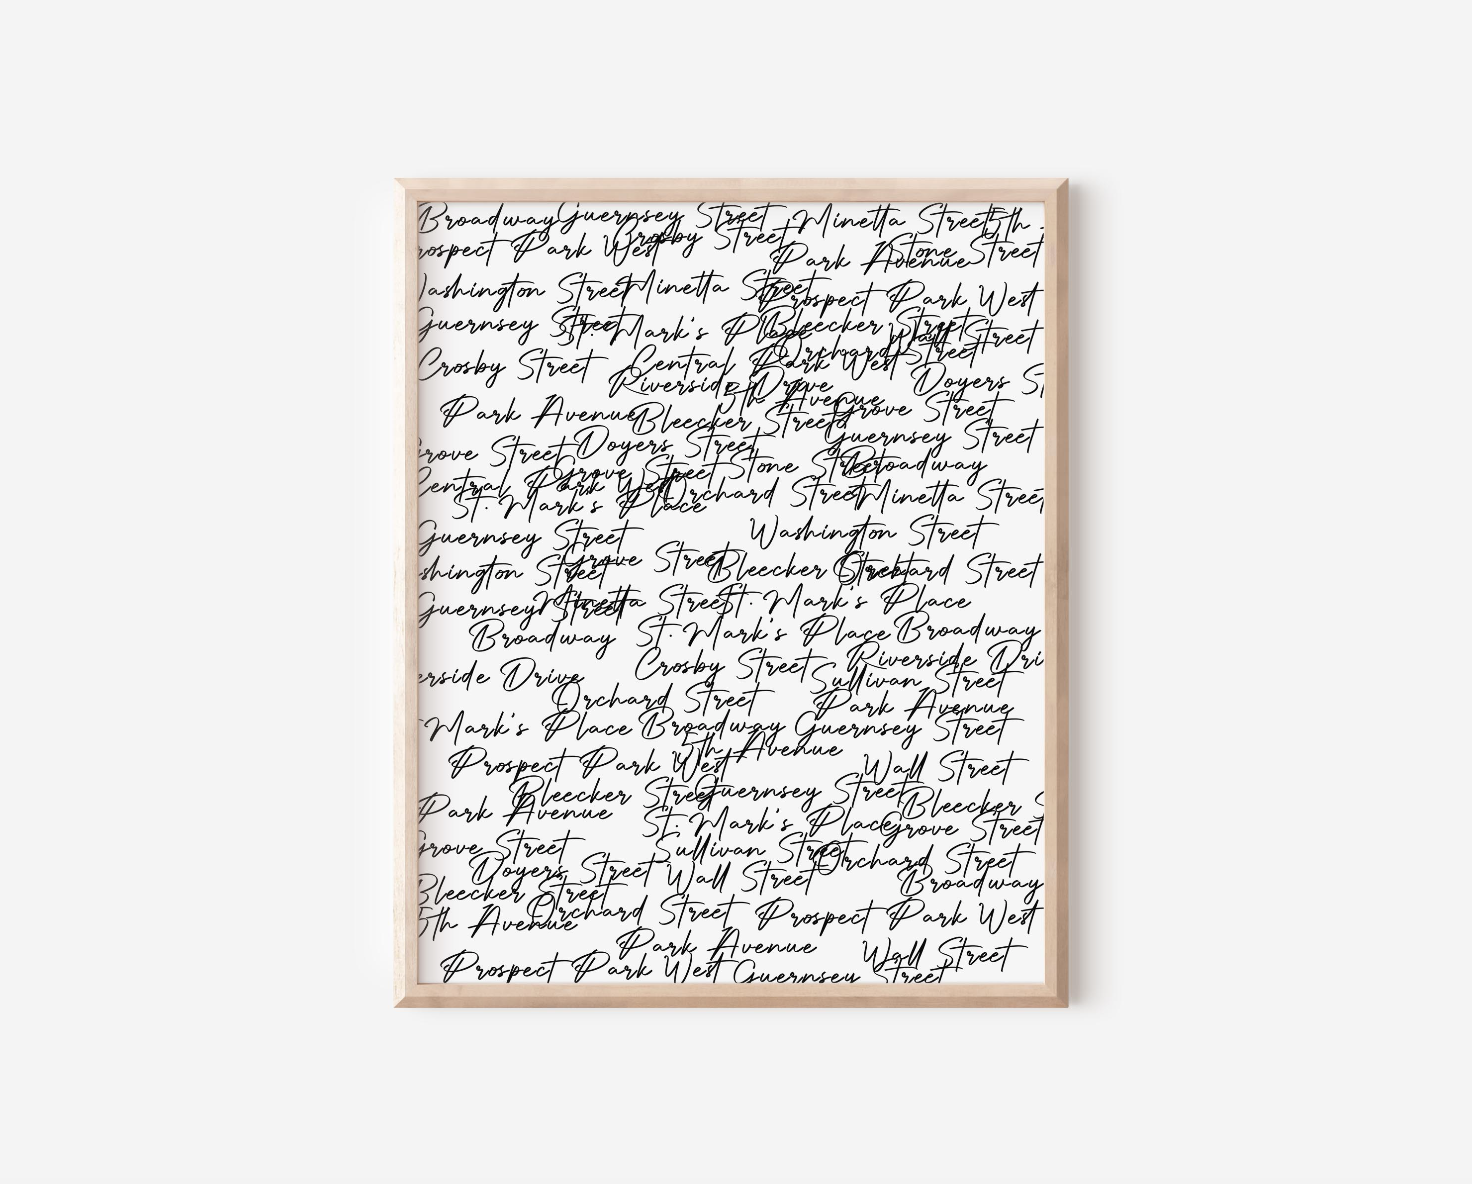 Broadway Guernsey Street Minetta Street 5th
rospect Park West Crosby Street Stone Street
Park Avenue
ashington Street Minetta Street
Prospect Park West
Guernsey Street St. Mark's Place Bleecker Street Wall Street
Orchard Street
Crosby Street Central Park West
Riverside Drive Doyers S
5th Avenue
Park Avenue Bleecker Street Grove Street
Guernsey Street
rove Street Doyers Street
Grove Street Stone Street Broadway
Central Park West Orchard Street Minetta Street
St. Mark's Place
Guernsey Street Washington Street
Grove Street
shington Street Bleecker Street Orchard Street
Guernsey Street Minetta Street St. Mark's Place
Broadway St. Mark's Place Broadway
Crosby Street Riverside Dri
erside Drive Sullivan Street
Orchard Street Park Avenue
Mark's Place Broadway Guernsey Street
5th Avenue
Prospect Park West Wall Street
Bleecker Street Guernsey Street
Park Avenue Bleecker S
St. Mark's Place Grove Street
rove Street Sullivan Street
Orchard Street
Doyers Street Wall Street Broadway
Bleecker Street
5th Avenue Orchard Street Prospect Park West
Park Avenue Wall Street
Prospect Park West Guernsey Street